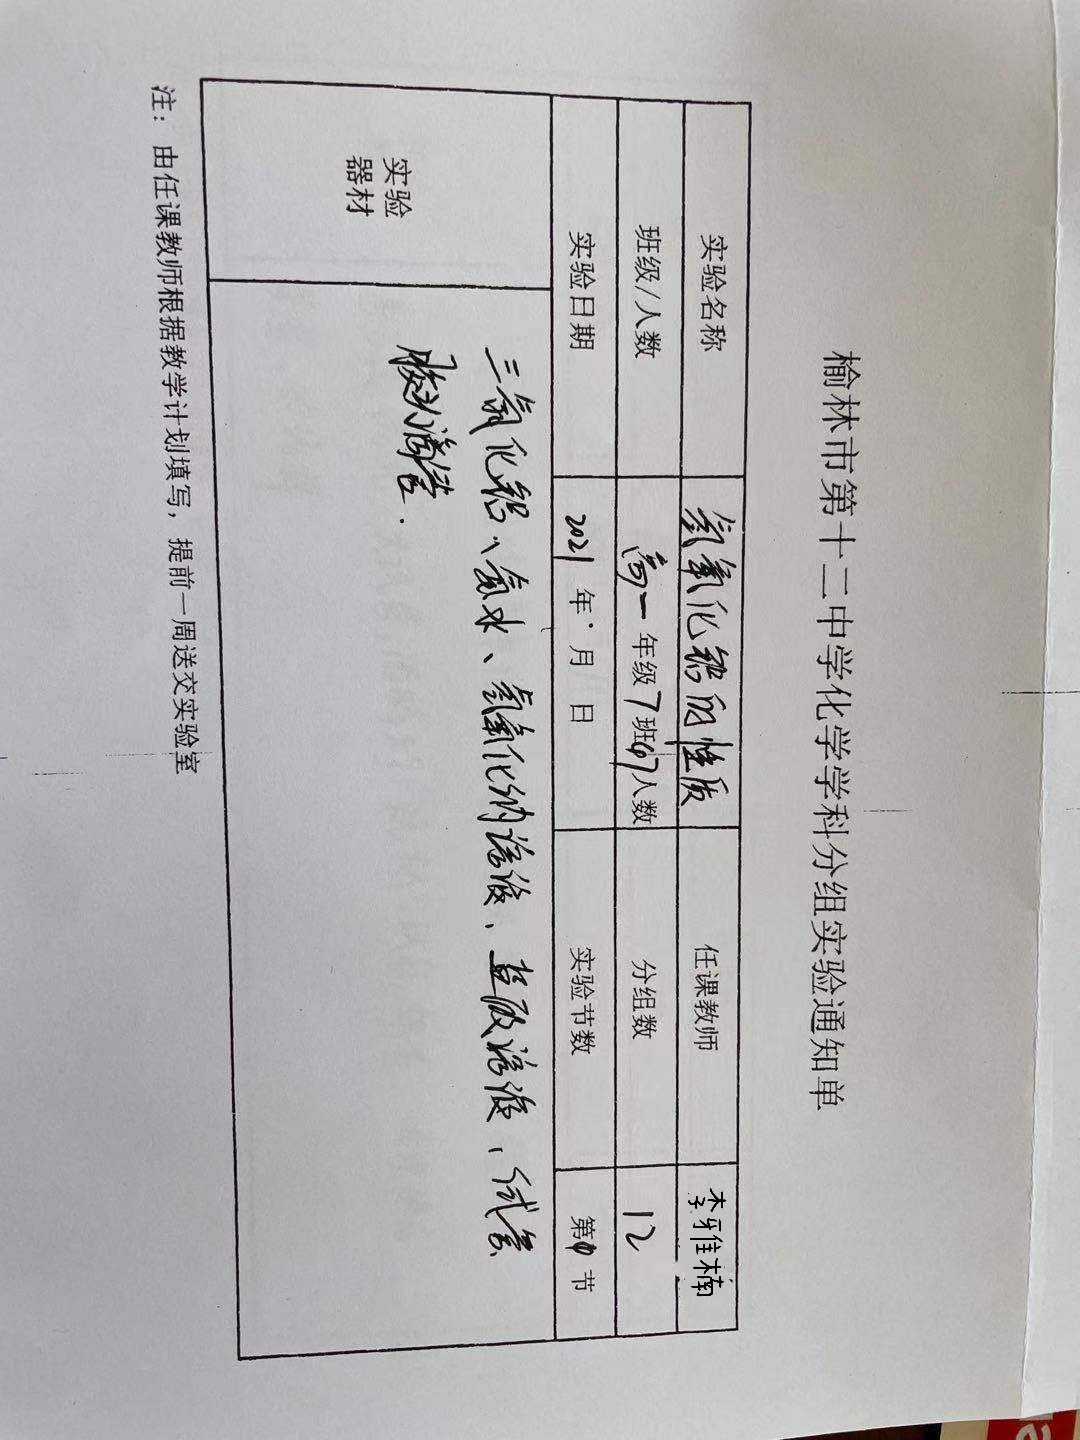 榆林市第十二中学化学学科分组实验通知单
实验名称 氢氧化铝的性质 任课教师 李雅楠
班级/人数 高一年级7班67人数 分组数 12
实验日期 2021年 月 日 实验节数 第 节
实验
器材
三氯化铝、氨水、氢氧化钠溶液、盐酸溶液、试管
胶头滴管.
注：由任课教师根据教学计划填写，提前一周送交实验室